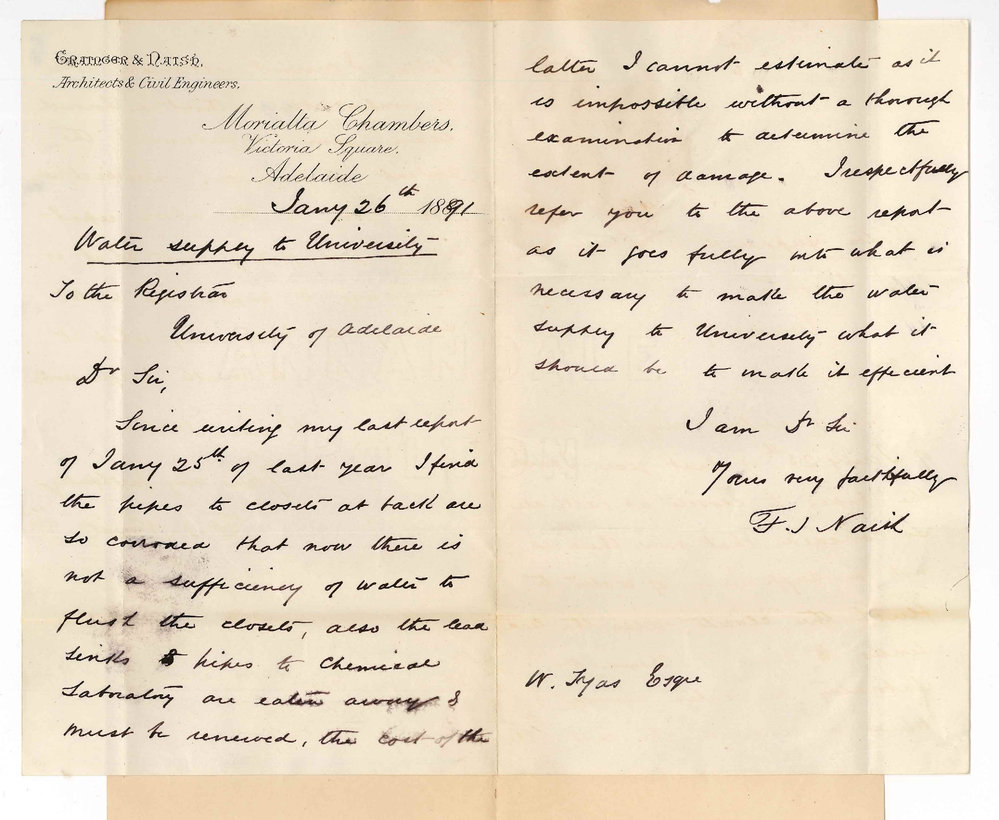 Grainger & Naish,
Architects & Civil Engineers.
Morialta Chambers,
Victoria Square,
Adelaide
Jany 26th 1891
Water supply to University
To the Registrar
University of Adelaide
Dr Sir,
Since writing my last report
of Jany 25th of last year I find
the pipes to closets at back are
so corroded that now there is
not a sufficiency of water to
flush the closets, also the lead
sinks & pipes to Chemical
Laboratory are eaten away &
must be renewed, the cost of the
latter I cannot estimate as it
is impossible without a thorough
examination to determine the
extent of damage. I respectfully
refer you to the above report
as it goes fully into what is
necessary to make the water
supply to University what it
should be to make it efficient
I am Dr Sir
Yours very faithfully
F. J Naish
W. Tyas Esqre